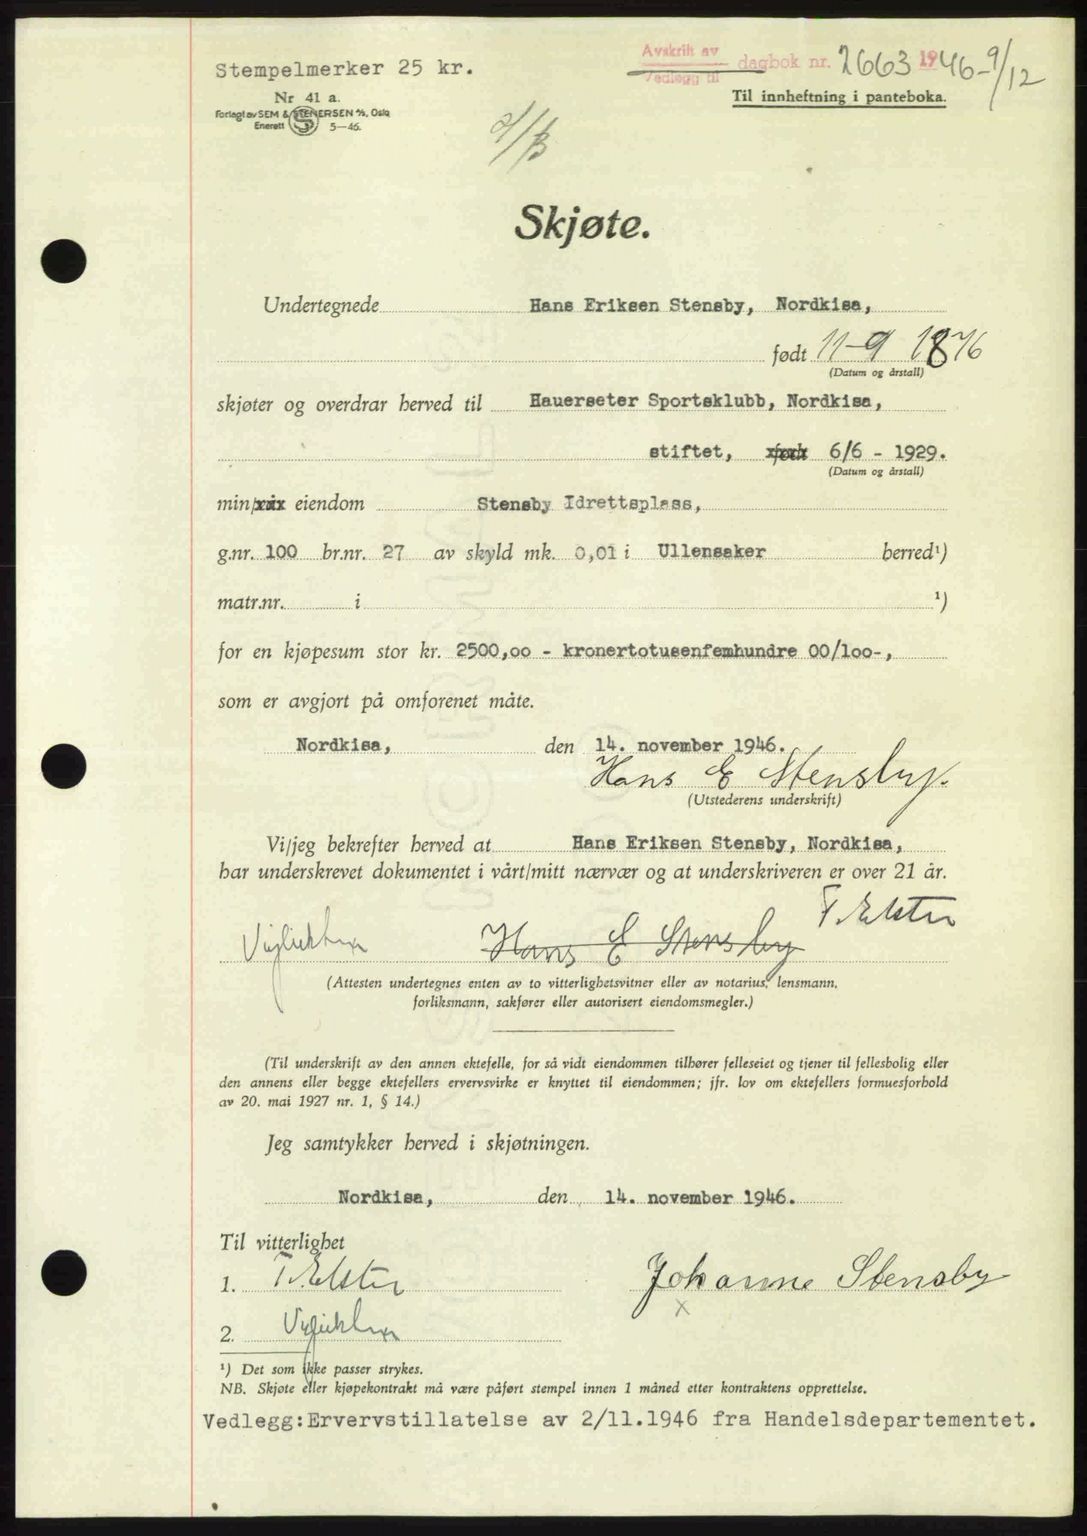 Avskrift av
Vedlegg til
dagbok nr. 2663 1946-9/12
Stempelmerker 25 kr.
Til innheftning i panteboka.
Nr 41 a.
Forlagt av SEM & STENERSEN A/S, Oslo
Enerett 5-46.
Skjøte.
Undertegnede Hans Eriksen Stensby, Nordkisa,
født 11-9 1876
(Datum og årstall)
skjøter og overdrar herved til Hauerseter Sportsklubb, Nordkisa,
stiftet, 6/6 - 1929.
(Datum og årstall)
min/xxx eiendom Stensby Idrettsplass,
g.nr. 100 br.nr. 27 av skyld mk. 0,01 i Ullensaker herred¹)
matr.nr. i ¹)
for en kjøpesum stor kr. 2500,oo - kronertotusenfemhundre 00/1oo-,
som er avgjort på omforenet måte.
Nordkisa, den 14. november 1946.
Hans E Stensby.
(Utstederens underskrift)
Vi/jeg bekrefter herved at Hans Eriksen Stensby, Nordkisa,
har underskrevet dokumentet i vårt/mitt nærvær og at underskriveren er over 21 år.
T. Elster
Hans E Stensby
(Attesten undertegnes enten av to vitterlighetsvitner eller av notarius, lensmann,
forliksmann, sakfører eller autorisert eiendomsmegler.)
(Til underskrift av den annen ektefelle, for så vidt eiendommen tilhører felleseiet og tjener til fellesbolig eller
den annens eller begge ektefellers ervervsvirke er knyttet til eiendommen; jfr. lov om ektefellers formuesforhold
av 20. mai 1927 nr. 1, § 14.)
Jeg samtykker herved i skjøtningen.
Nordkisa, den 14. november 1946.
Til vitterlighet
1. T. Elster
Johanne Stensby
x
2.
¹) Det som ikke passer strykes.
NB. Skjøte eller kjøpekontrakt må være påført stempel innen 1 måned etter kontraktens opprettelse.
Vedlegg: Ervervstillatelse av 2/11.1946 fra Handelsdepartementet.